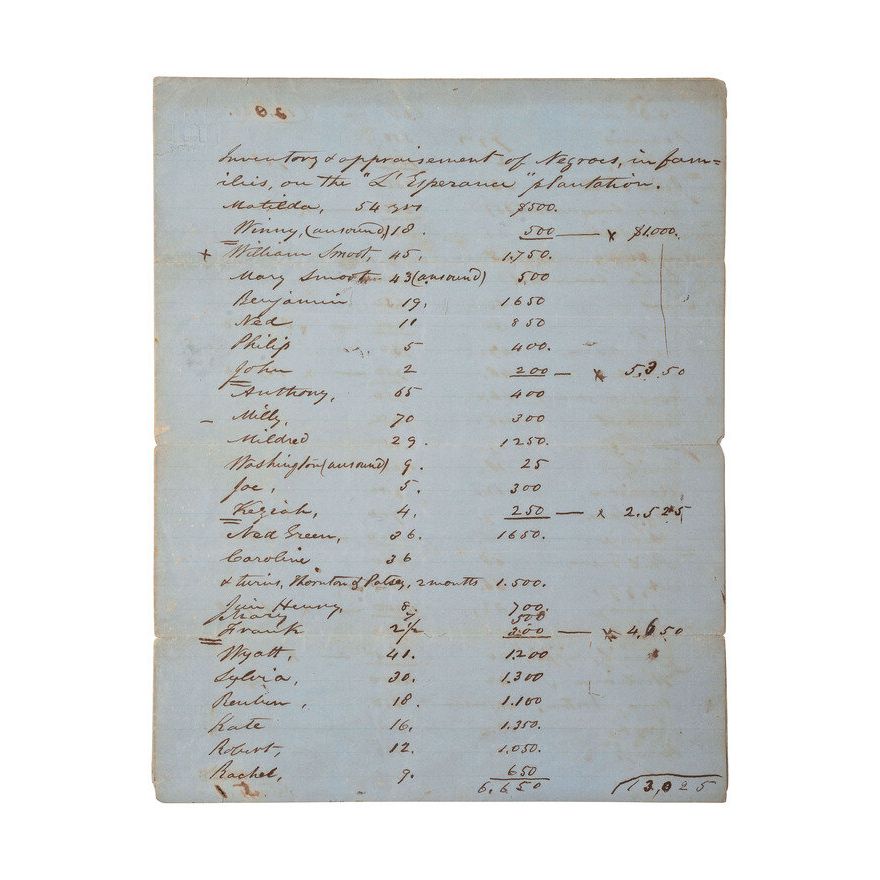 Inventory & appraisement of Negroes, in fam=
ilies, on the "L'Esperance" plantation.
Matilda, 54 yrs $500.
Winny, (unsound) 18. 500 — x $1.000.
+ William Smoot, 45, 1.750.
Mary Smoot 43 (unsound) 500
Benjamin 19, 1650
Ned 11 850
Philip 5 400.
John 2 200 — x 5,350
Anthony, 65 400
– Milly, 70 300
Mildred 29. 1250.
Washington (unsound) 9. 25
Joe, 5. 300
Keziah, 4. 250 — x 2.525
Ned Green, 36. 1650.
Caroline 36
& twins, Thornton & Patsey, 2 months 1.500.
Jim Henry, 8. 700.
Mary 7 500
Frank 2 1/2 300 — x 4,650
Wyatt, 41. 1.200
Sylvia, 30. 1.300
Reuben, 18. 1.100
Kate 16, 1.350.
Robert, 12. 1.050.
Rachel, 9. 650
6,650 13,025